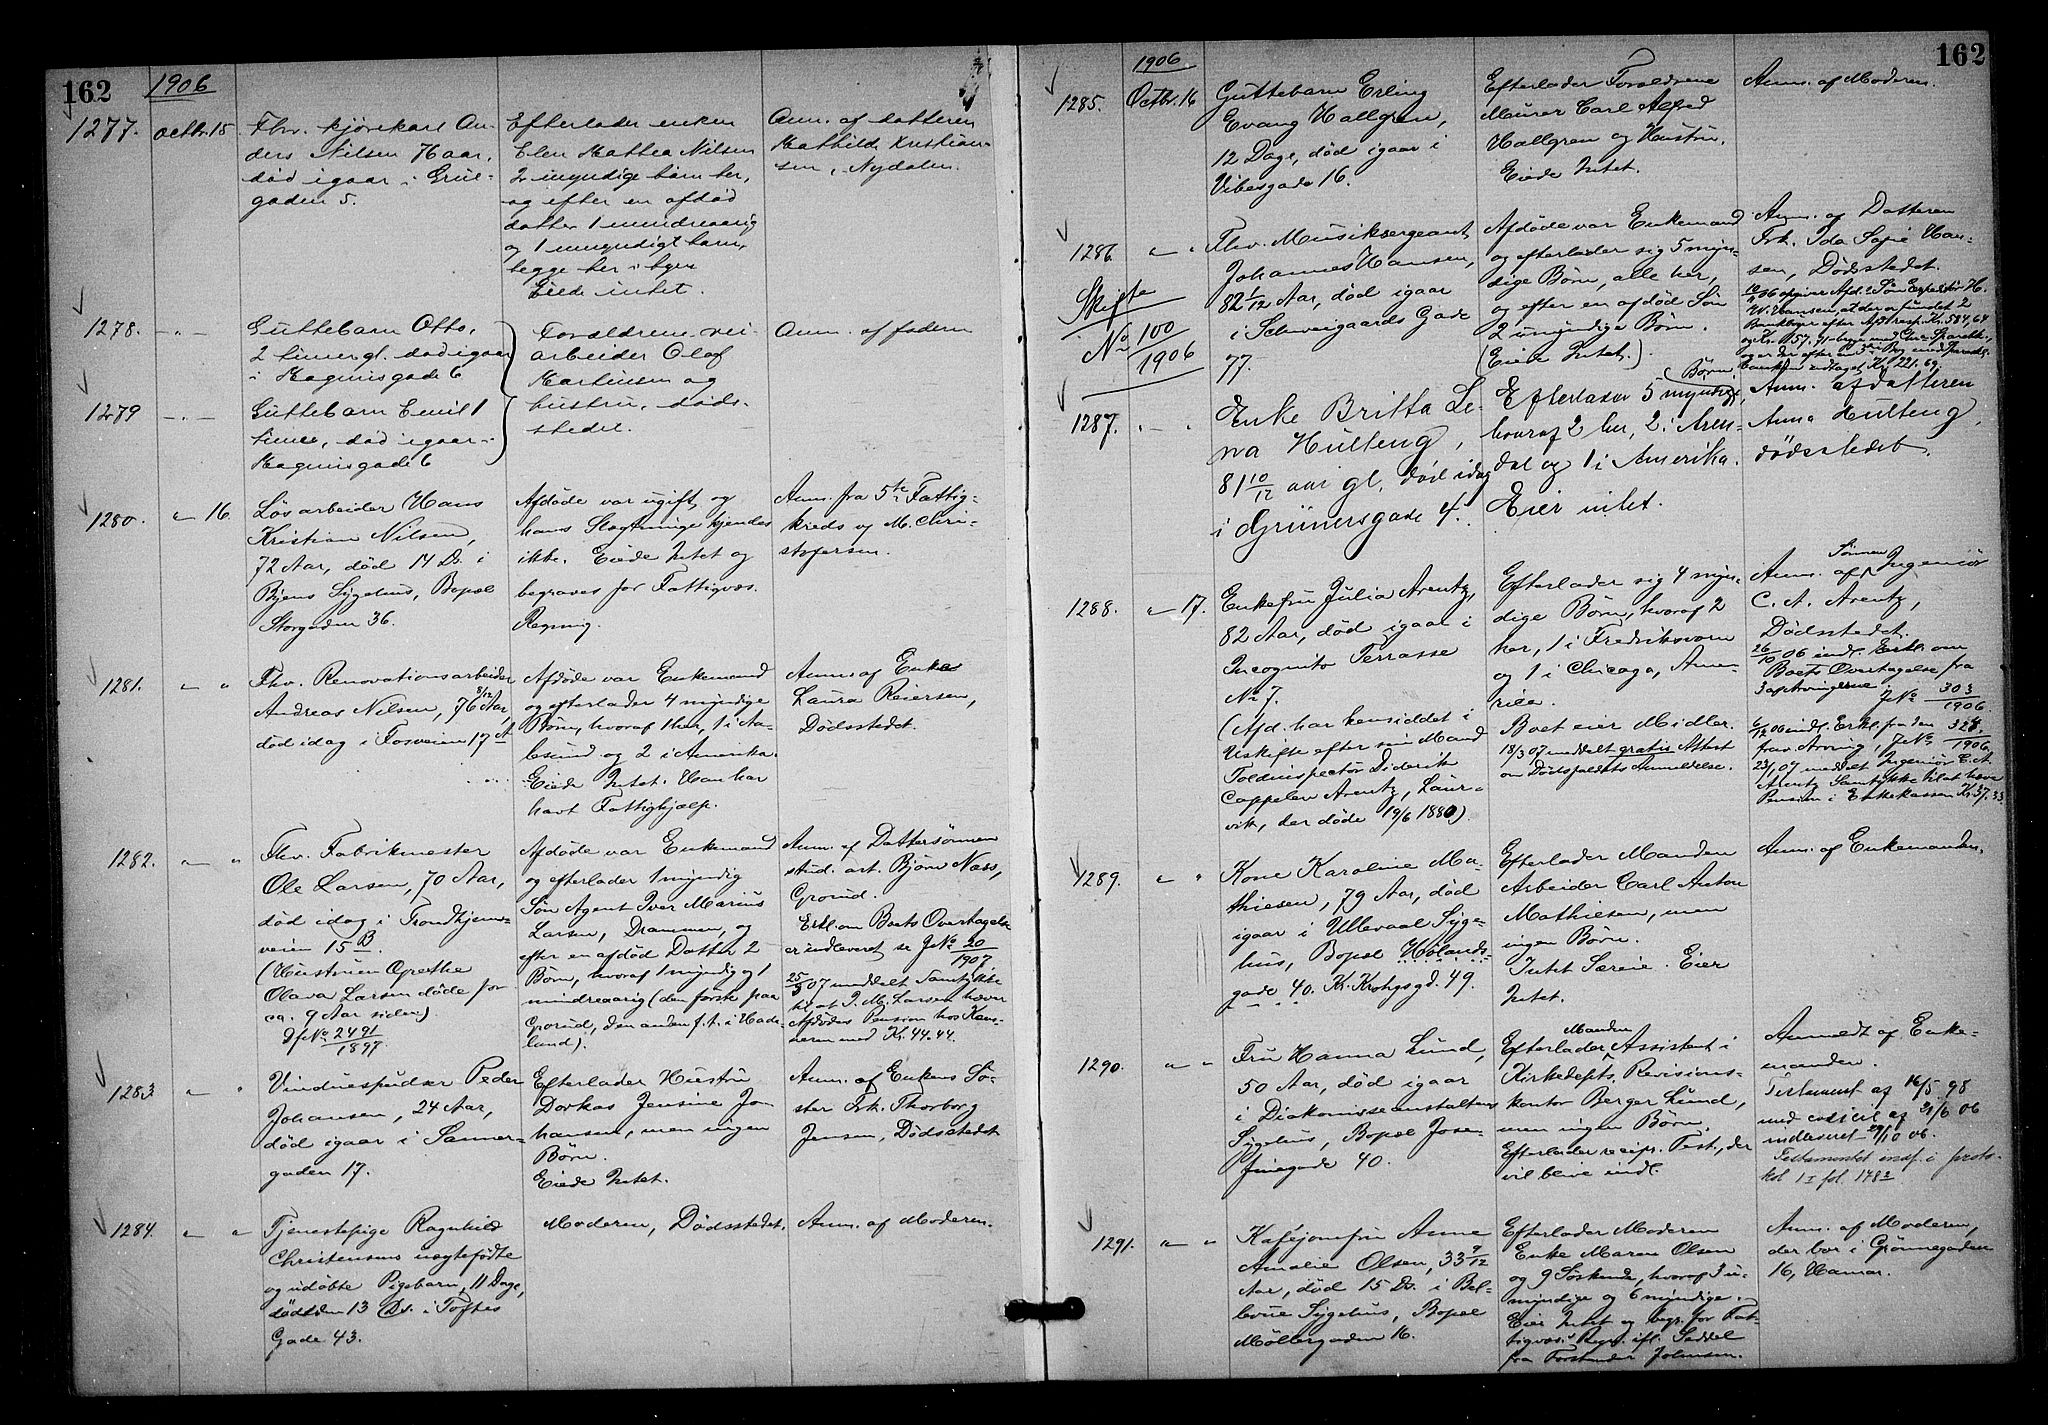 162
1906
1277.
Octbr. 15
Fhv. kjørekarl An-
ders Nilsen 74 aar,
død igaar i Grue-
gaden 5.
Efterlader enken
Elen Mathea Nilsen
2 myndige barn her,
og efter en afdød
datter 1 mindreaarig
og 1 umyndigt barn,
begge her i byen
Eiede intet.
Anm. af datteren
Mathilde Kristian-
sen, Nydalen.
1278. - " -
Guttebarn Otto,
2 timer gl. død igaar
i Magnusgade 6
Forældrene vei-
arbeider Olaf
Martinsen og
hustru, døds-
stedet.
Anm. af faderen
1279 - " -
Guttebarn Emil 1
time, død igaar i
Magnusgade 6
1280. " 16.
Løsarbeider Hans
Kristian Nilsen,
72 Aar, død 14 Ds. i
Byens Sygehus, Bopæl
Storgaden 36.
Afdøde var ugift og
hans Slægtninge kjendes
ikke. Eiede Intet og
begraves for Fattigvæs.
Regning.
Anm. fra 5te Fattig-
kreds v M. Chri-
stofersen.
1281. " "
Fhv. Renovationsarbeider
Andreas Nilsen, 76 3/12 Aar,
død idag i Fosveien 17 A
Afdøde var Enkemand
og efterlader 4 myndige
Børn, hvoraf 1 her, 1 i Aa-
lesund og 2 i Amerika.
Eiede Intet. Han har
havt Fattighjælp.
Anm af Enke
Laura Reiersen,
Dødsstedet.
1282. " "
Fhv. Fabrikmester
Ole Larsen, 70 Aar,
død idag i Trondhjems-
veien 15 B.
(Hustruen Grethe
Olava Larsen døde for
ca. 9 Aar siden)
Df No 2491/1897
Afdøde var Enkemand
og efterlader 1 myndig
Søn Agent Iver Marius
Larsen, Drammen, og
efter en afdød Datter 2
Børn, hvoraf 1 myndig og 1
mindreaarig (den første paa
Grorud, den anden f.t. i Hade-
land).
Anm. af Dattersønnen
stud. art. Bjørn Næss,
Grorud.
Erkl. om Boets Overtagelse
er indleveret se J No 20/1907
25/3 07 meddelt Samtykke
til at I. M. Larsen hæver
Afdødes Pension hos Kæm-
neren med Kr. 44.44.
1283. " "
Vinduespudser Peder
Johansen, 24 Aar,
død igaar i Sanner-
gaden 17.
Efterlader Hustru
Dorkas Jensine Jo-
hansen, men ingen
Børn.
Eiede Intet.
Anm. af Enkens Sø-
ster Frk. Thorborg
Jensen, Dødsstedet
1284. " "
Tjenestepige Ragnhild
Christensens uægtefødte
og udøbte Pigebarn, 11 Dage,
død den 13 Ds. i Toftes
Gade 43.
Moderen, Dødsstedet.
Anm. af Moderen.
162
1906
1285. Octbr. 16
Guttebarn Erling
Evang Hallgren,
12 Dage, død igaar i
Vibesgade 16.
Efterlader Forældrene
Murer Carl Alfred
Hallgren og Hustru.
Eiede Intet.
Anm. af Moderen.
1286. " "
Skifte
No 100
1906
Fhv. Musiksergeant
Johannes Hansen,
82 1/12 Aar, død igaar
i Schweigaards Gade
77.
Afdøde var Enkemand
og efterlader sig 5 myn-
dige Børn, alle her,
og efter en afdød Søn
2 umyndige Børn.
(Eiede Intet.)
Anm. af Datteren
Frk. Ida Sofie Han-
sen, Dødsstedet.
1287. " "
Enke Britta Le-
na Hulteng,
81 10/12 aar gl, død idag
i Grünersgade 4.
Efterlader 5 myndige Børn
hvoraf 2 her, 2 i Aren-
dal og 1 i Amerika.
Eier intet.
Anm. af datteren
Anna Hulteng,
dødsstedet.
1288. " 17.
Enkefru Julia Arentz,
82 Aar, død igaar i
Incognito Terrasse
No 7.
(Afd. har hensiddet i
Uskifte efter sin Mand
Toldinspektør Diderik
Cappelen Arentz, Laur-
vik, der døde 19/6 1880).
Efterlader sig 4 myn-
dige Børn, hvoraf 2
her, 1 i Fredriksværn
og 1 i Chicago, Ame-
rika.
Boet eier Midler.
18/3 07 meddelt gratis Attest
om Dødsfaldets Anmeldelse.
Anm. af Sønnen Ingeniør
C. A. Arentz,
Dødsstedet.
26/10 06 indl. Erkl. om
Boets Overtagelse fra
3 af Arvingerne, J No 303/1906.
6/12 06 indl. Erkl. fra den
frav. Arving, J No 328/1906.
23/1 07 meddelt Ingeniør C. A.
Arentz Samtykke til at hæve
Pension i Enkekassen Kr. 37.33
1289. " "
Kone Karoline Ma-
thiesen, 79 Aar, død
igaar i Ullevaal Syge-
hus, Bopæl Hølands-
gade 40. Kr. Krohgsgd. 49.
Efterlader Manden
Arbeider Carl Anton
Mathiesen, men
ingen Børn.
Intet Særeie. Eier
Intet.
Anm. af Enkemanden.
1290. " "
Fru Hanna Lund,
50 Aar, død igaar
i Diakonisseanstaltens
Sygehus, Bopæl Jose-
finegade 40.
Efterlader Manden Assistent i
Kirkedepts. Revisions-
kontor Berger Lund,
men ingen Børn.
Efterlader recipr. Test., der
vil blive indl.
Anmeldt af Enke-
manden.
Testament af 16/5 98
med codicil af 21/6 06
indleveret 29/10 06.
Testamentet indf. i proto-
kol 1 I fol. 148 2
1291. " "
Kaféjomfru Anne
Amalie Olsen, 33 9/12
Aar, død 15 Ds. i Bel-
levue Sygehus, Bopæl
Møllergaden 16.
Efterlader Moderen
Enke Maren Olsen
og 9 Søskende, hvoraf 3 u-
myndige og 6 myndige.
Eier Intet og begr. for Fat-
tigvæs. Regn. ifl. Seddel
fra Forstander Johnsen.
Anm. af Moderen,
der bor i Grønnegaden
16, Hamar.